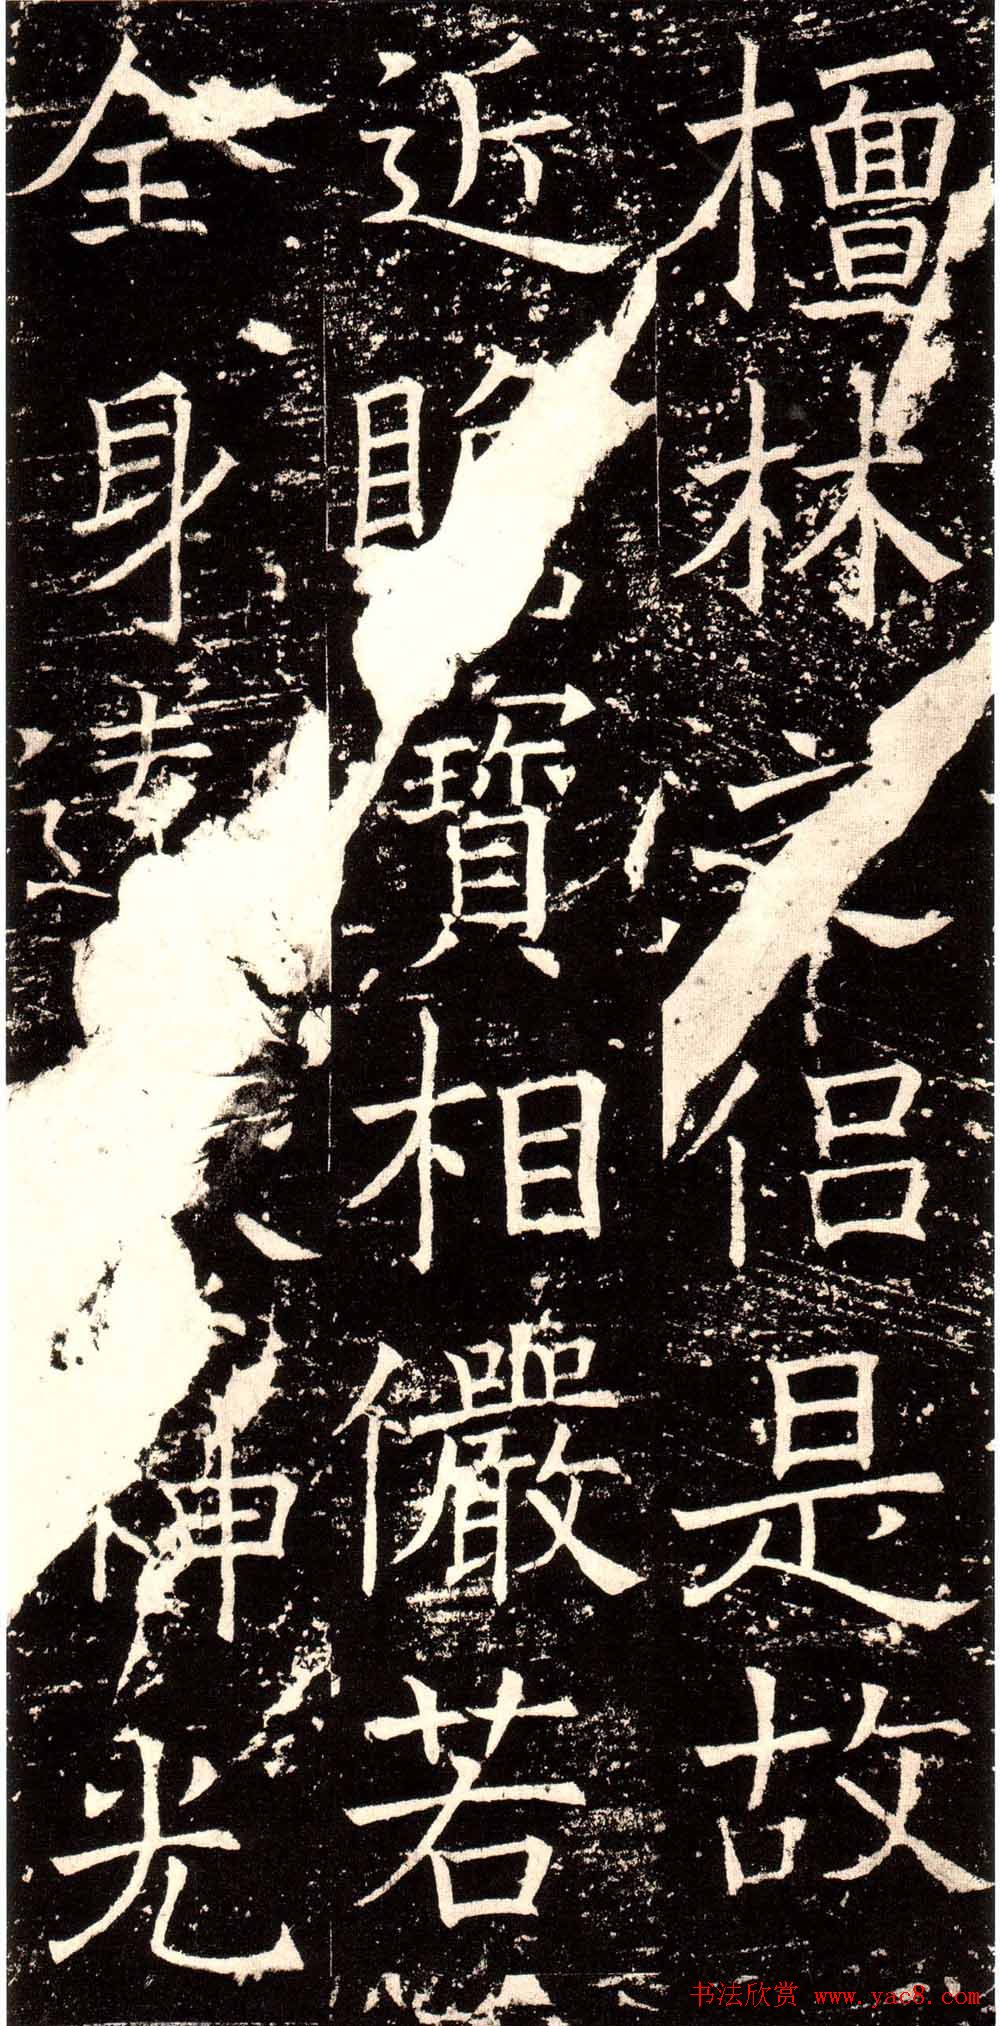 檀林之侶是故
近瞻寶相儼若
全身遠神光
书法欣赏 www.yac8.com